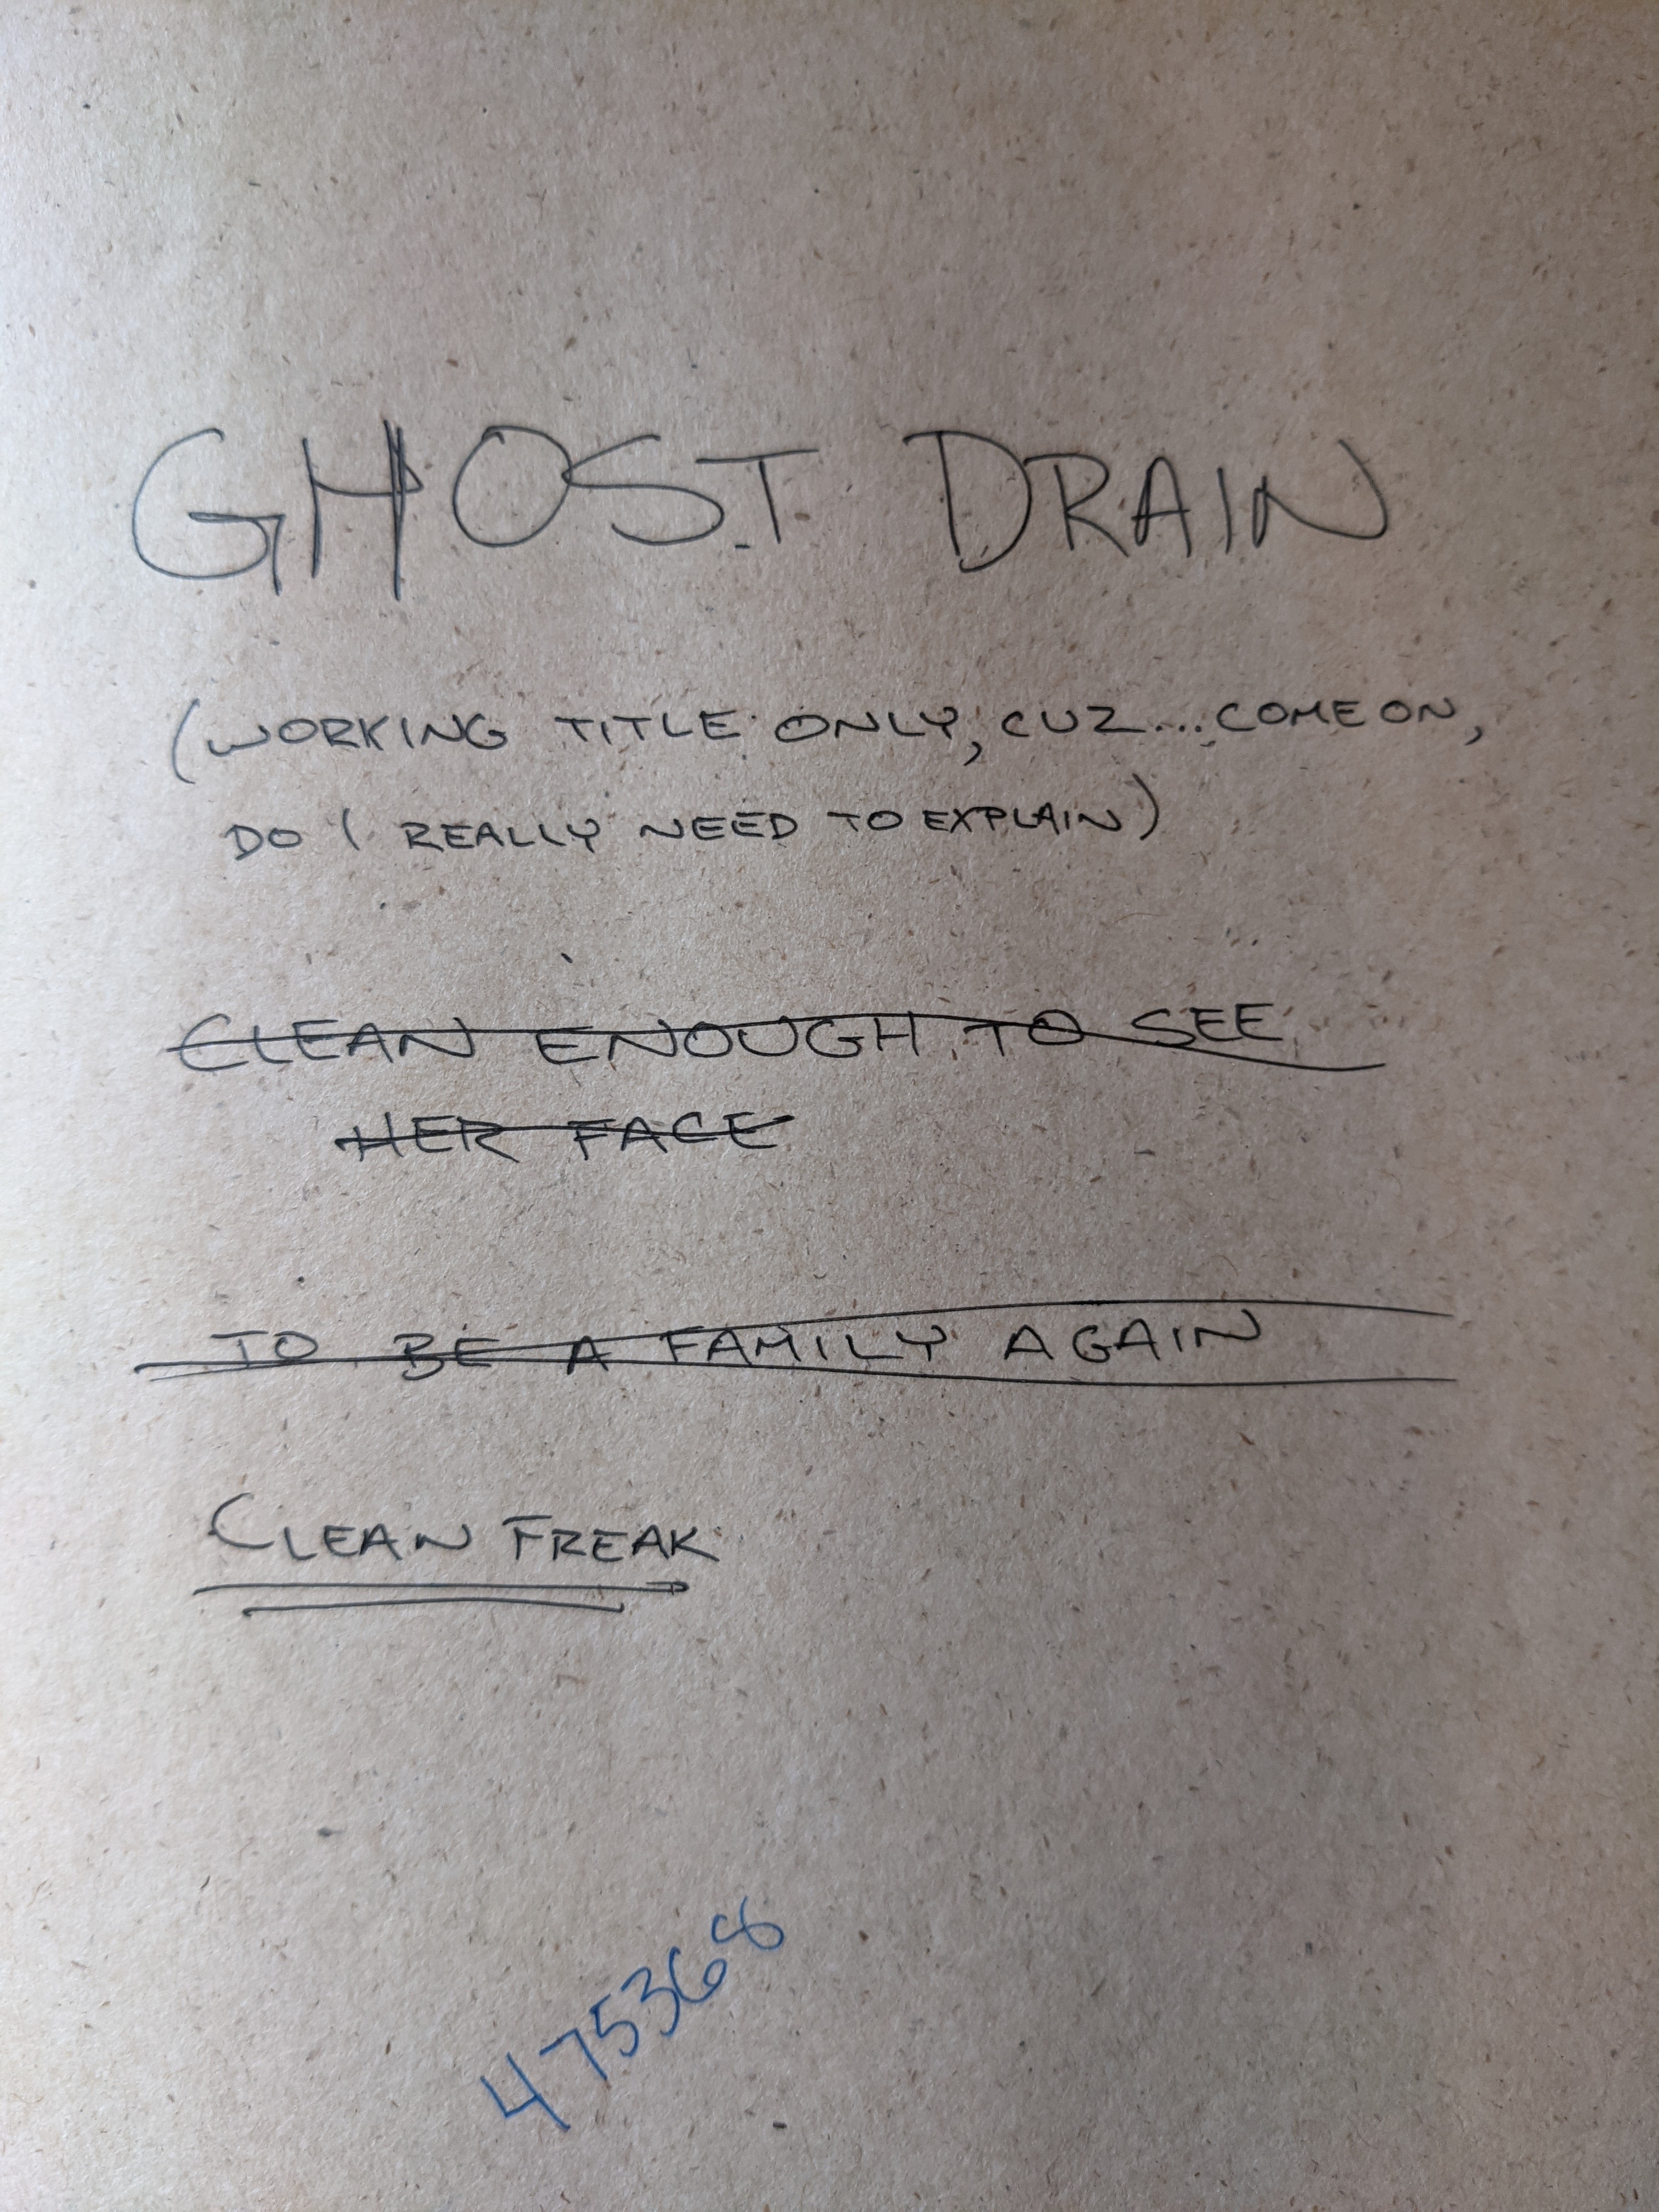 GHOST DRAIN
(WORKING TITLE ONLY, CUZ... COME ON,
DO I REALLY NEED TO EXPLAIN)
CLEAN ENOUGH TO SEE
HER FACE
TO BE A FAMILY AGAIN
CLEAN FREAK
475368